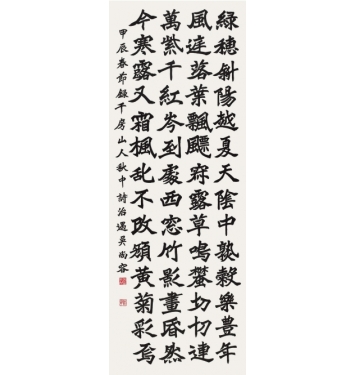 綠穗斜陽越夏天陰中孰穀樂豊年
風落葉飄飃露草鳴切切連
萬紫千紅岑到處西窓竹影畫昏然
今寒露又霜楓乱不改頻黃菊彩焉
甲辰春節錄千房山人秋中詩治遇吳尚容